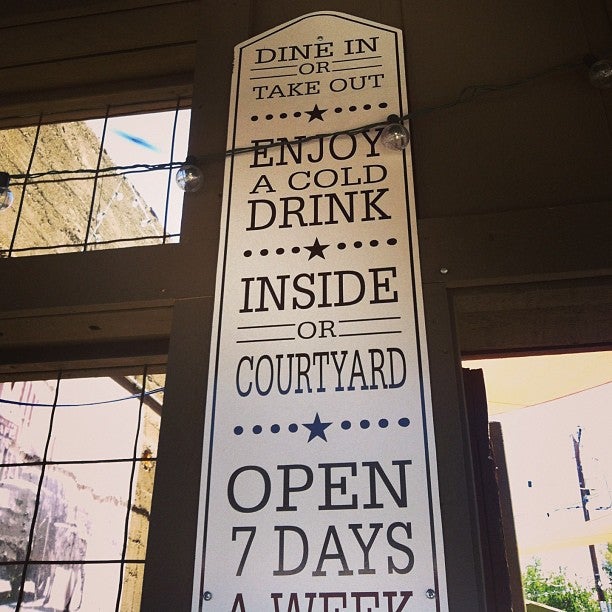 DINE IN
OR
TAKE OUT
ENJOY
A COLD
DRINK
INSIDE
OR
COURTYARD
OPEN
7 DAYS
A WEEK